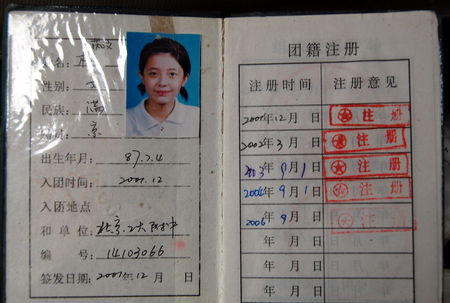 姓名：
性别：女
民族：满
籍贯：京
出生年月：87.7.4
入团时间：2001.12
入团地点
和单位：北京
编 号：14103066
签发日期：2001年12月 日
团籍注册
注册时间 注册意见
2001年12月 日 注册
2002年3月 日 注册
2003年9月1日 注册
2004年9月1日 注册
2006年9月 日 注册
年 月 日
年 月 日
年 月 日